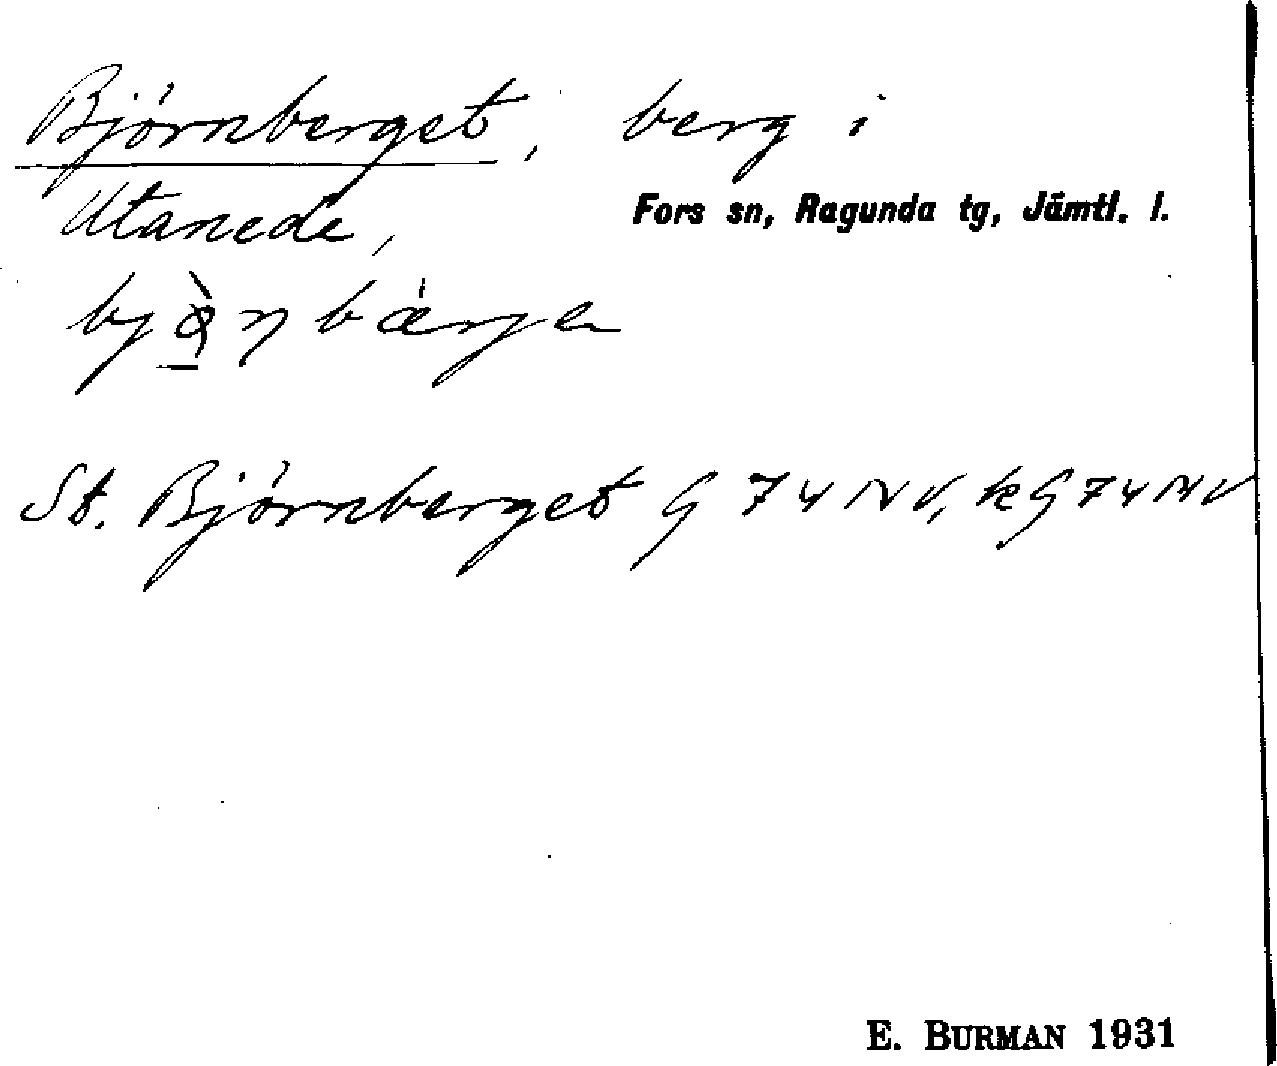 Björnberget, berg i
Utanede, Fors sn, Ragunda tg, Jämtl. l.
St. Björnberget G 74 NV, kG 74 NV
E. BURMAN 1931